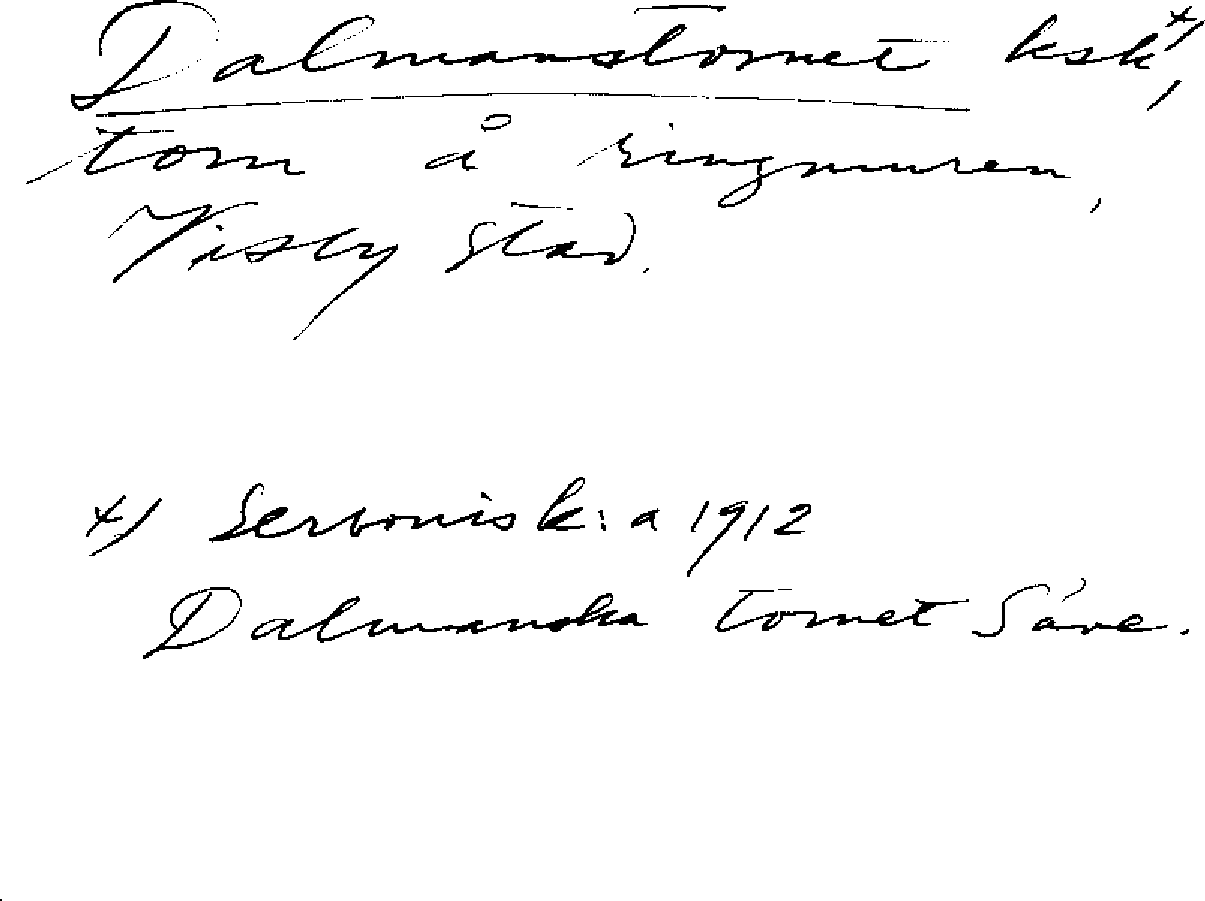 Dalmanstornet ksk*),
torn å ringmuren,
Visby stad.
*) Serbonisk:a 1912
Dalmanska tornet Säve.